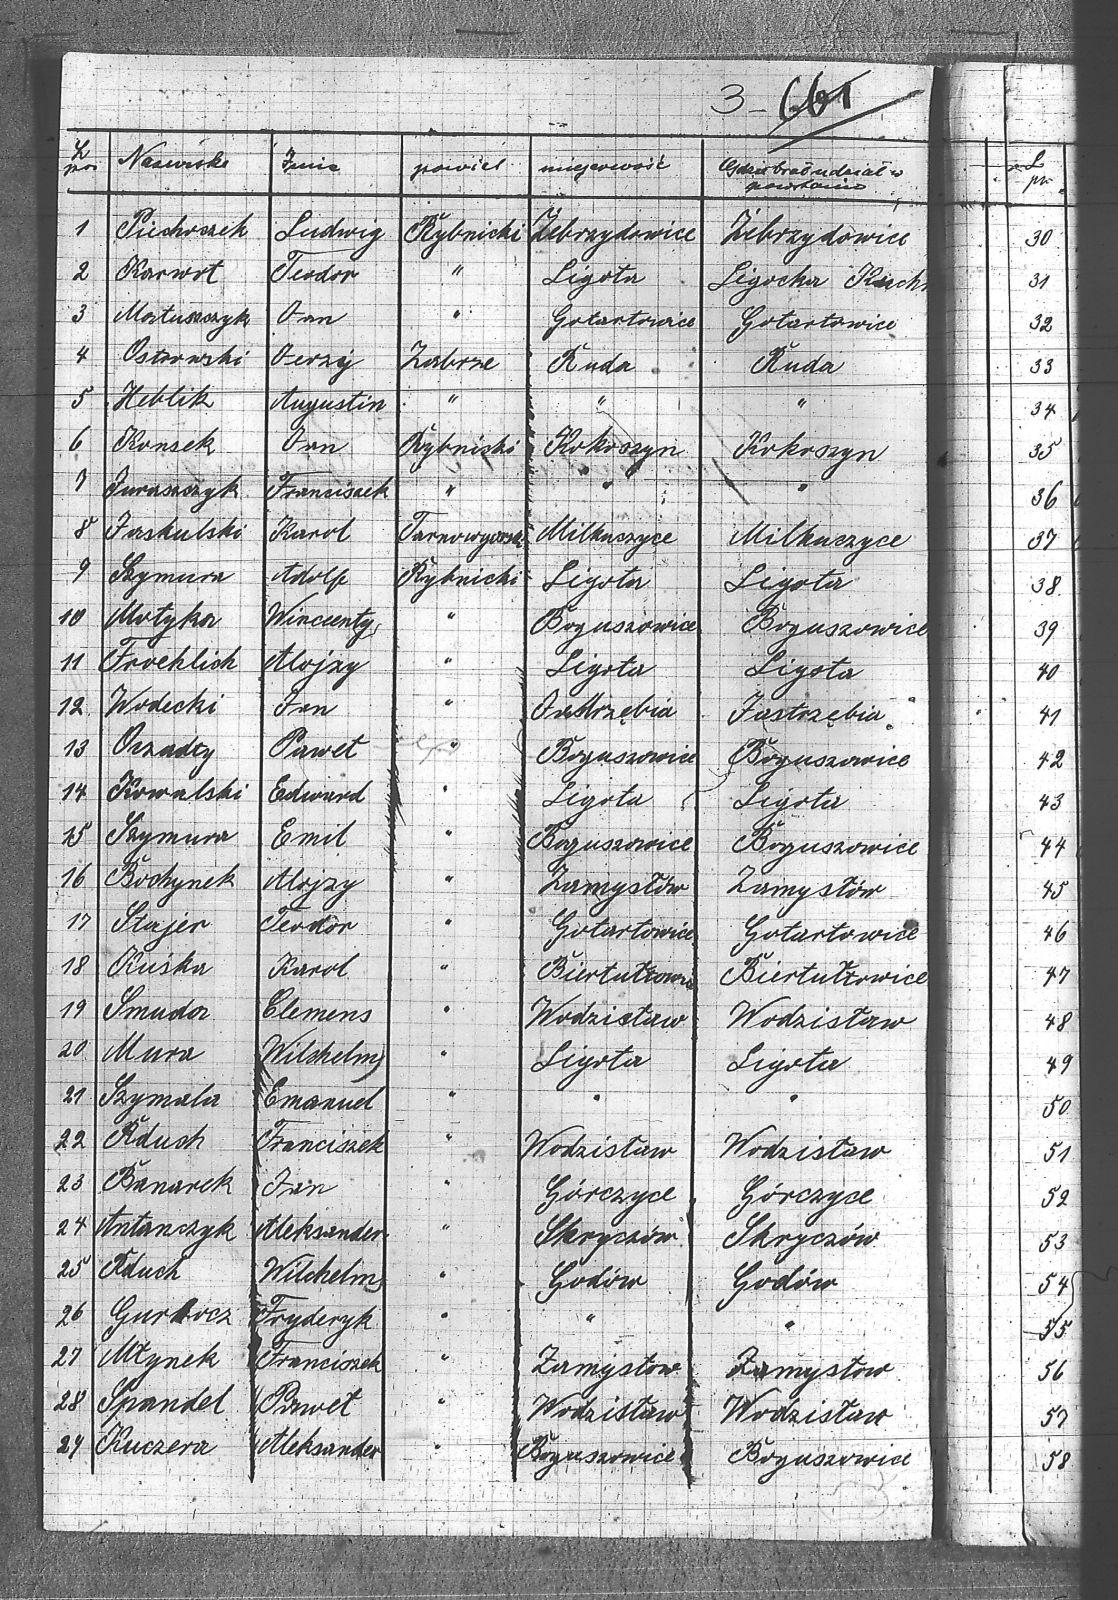 3-
L por Nazwisko Imie powiet miejscowość Gdzie brał udział w powstaniu
1 Piechoczek Ludwig Rybnicki Żebrzydowice Żebrzydowice
2 Karwot Teodor " Ligota Ligocka
3 Matuszczyk Jan " Gotartowice Gotartowice
4 Ostrowski Jerzy Zabrze Ruda Ruda
5 Heblik Augustin " " "
6 Konsek Jan Rybnicki Kokoszyn Kokoszyn
7 Juraszczyk Franciszek " " "
8 Jaskulski Karol Milkuczyce Milkuczyce
9 Szymura Adolf Rybnicki Ligota Ligota
10 Motyka Wincenty " Boguszowice Boguszowice
11 Froehlich Alojzy " Ligota Ligota
12 Wodecki Jan " Jastrzębia Jastrzębia
13 Paweł " Boguszowice Boguszowice
14 Kowalski Edward " Ligota Ligota
15 Szymura Emil " Boguszowice Boguszowice
16 Bochynek Alojzy " Zamysłów Zamysłów
17 Stajer Teodor " Gotartowice Gotartowice
18 Kuśka Karol " Biertułtowice
19 Smuda Clemens " Wodzisław Wodzisław
20 Mura Wilchelm " Ligota Ligota
21 Szymala Emanuel " " "
22 Rduch Franciszek " Wodzisław Wodzisław
23 Banarek Jan " Górczyce Górczyce
24 Antanczyk Aleksander " Skryczów Skryczów
25 Rduch Wilchelm " Godów Godów
26 Fryderyk " " "
27 Młynek Franciszek " Zamysłow Zamysłow
28 Spandel Paweł " Wodzisław Wodzisław
29 Kuczera Aleksander " Boguszowice Boguszowice
L pr
30
31
32
33
34
35
36
37
38
39
40
41
42
43
44
45
46
47
48
49
50
51
52
53
54
55
56
57
58